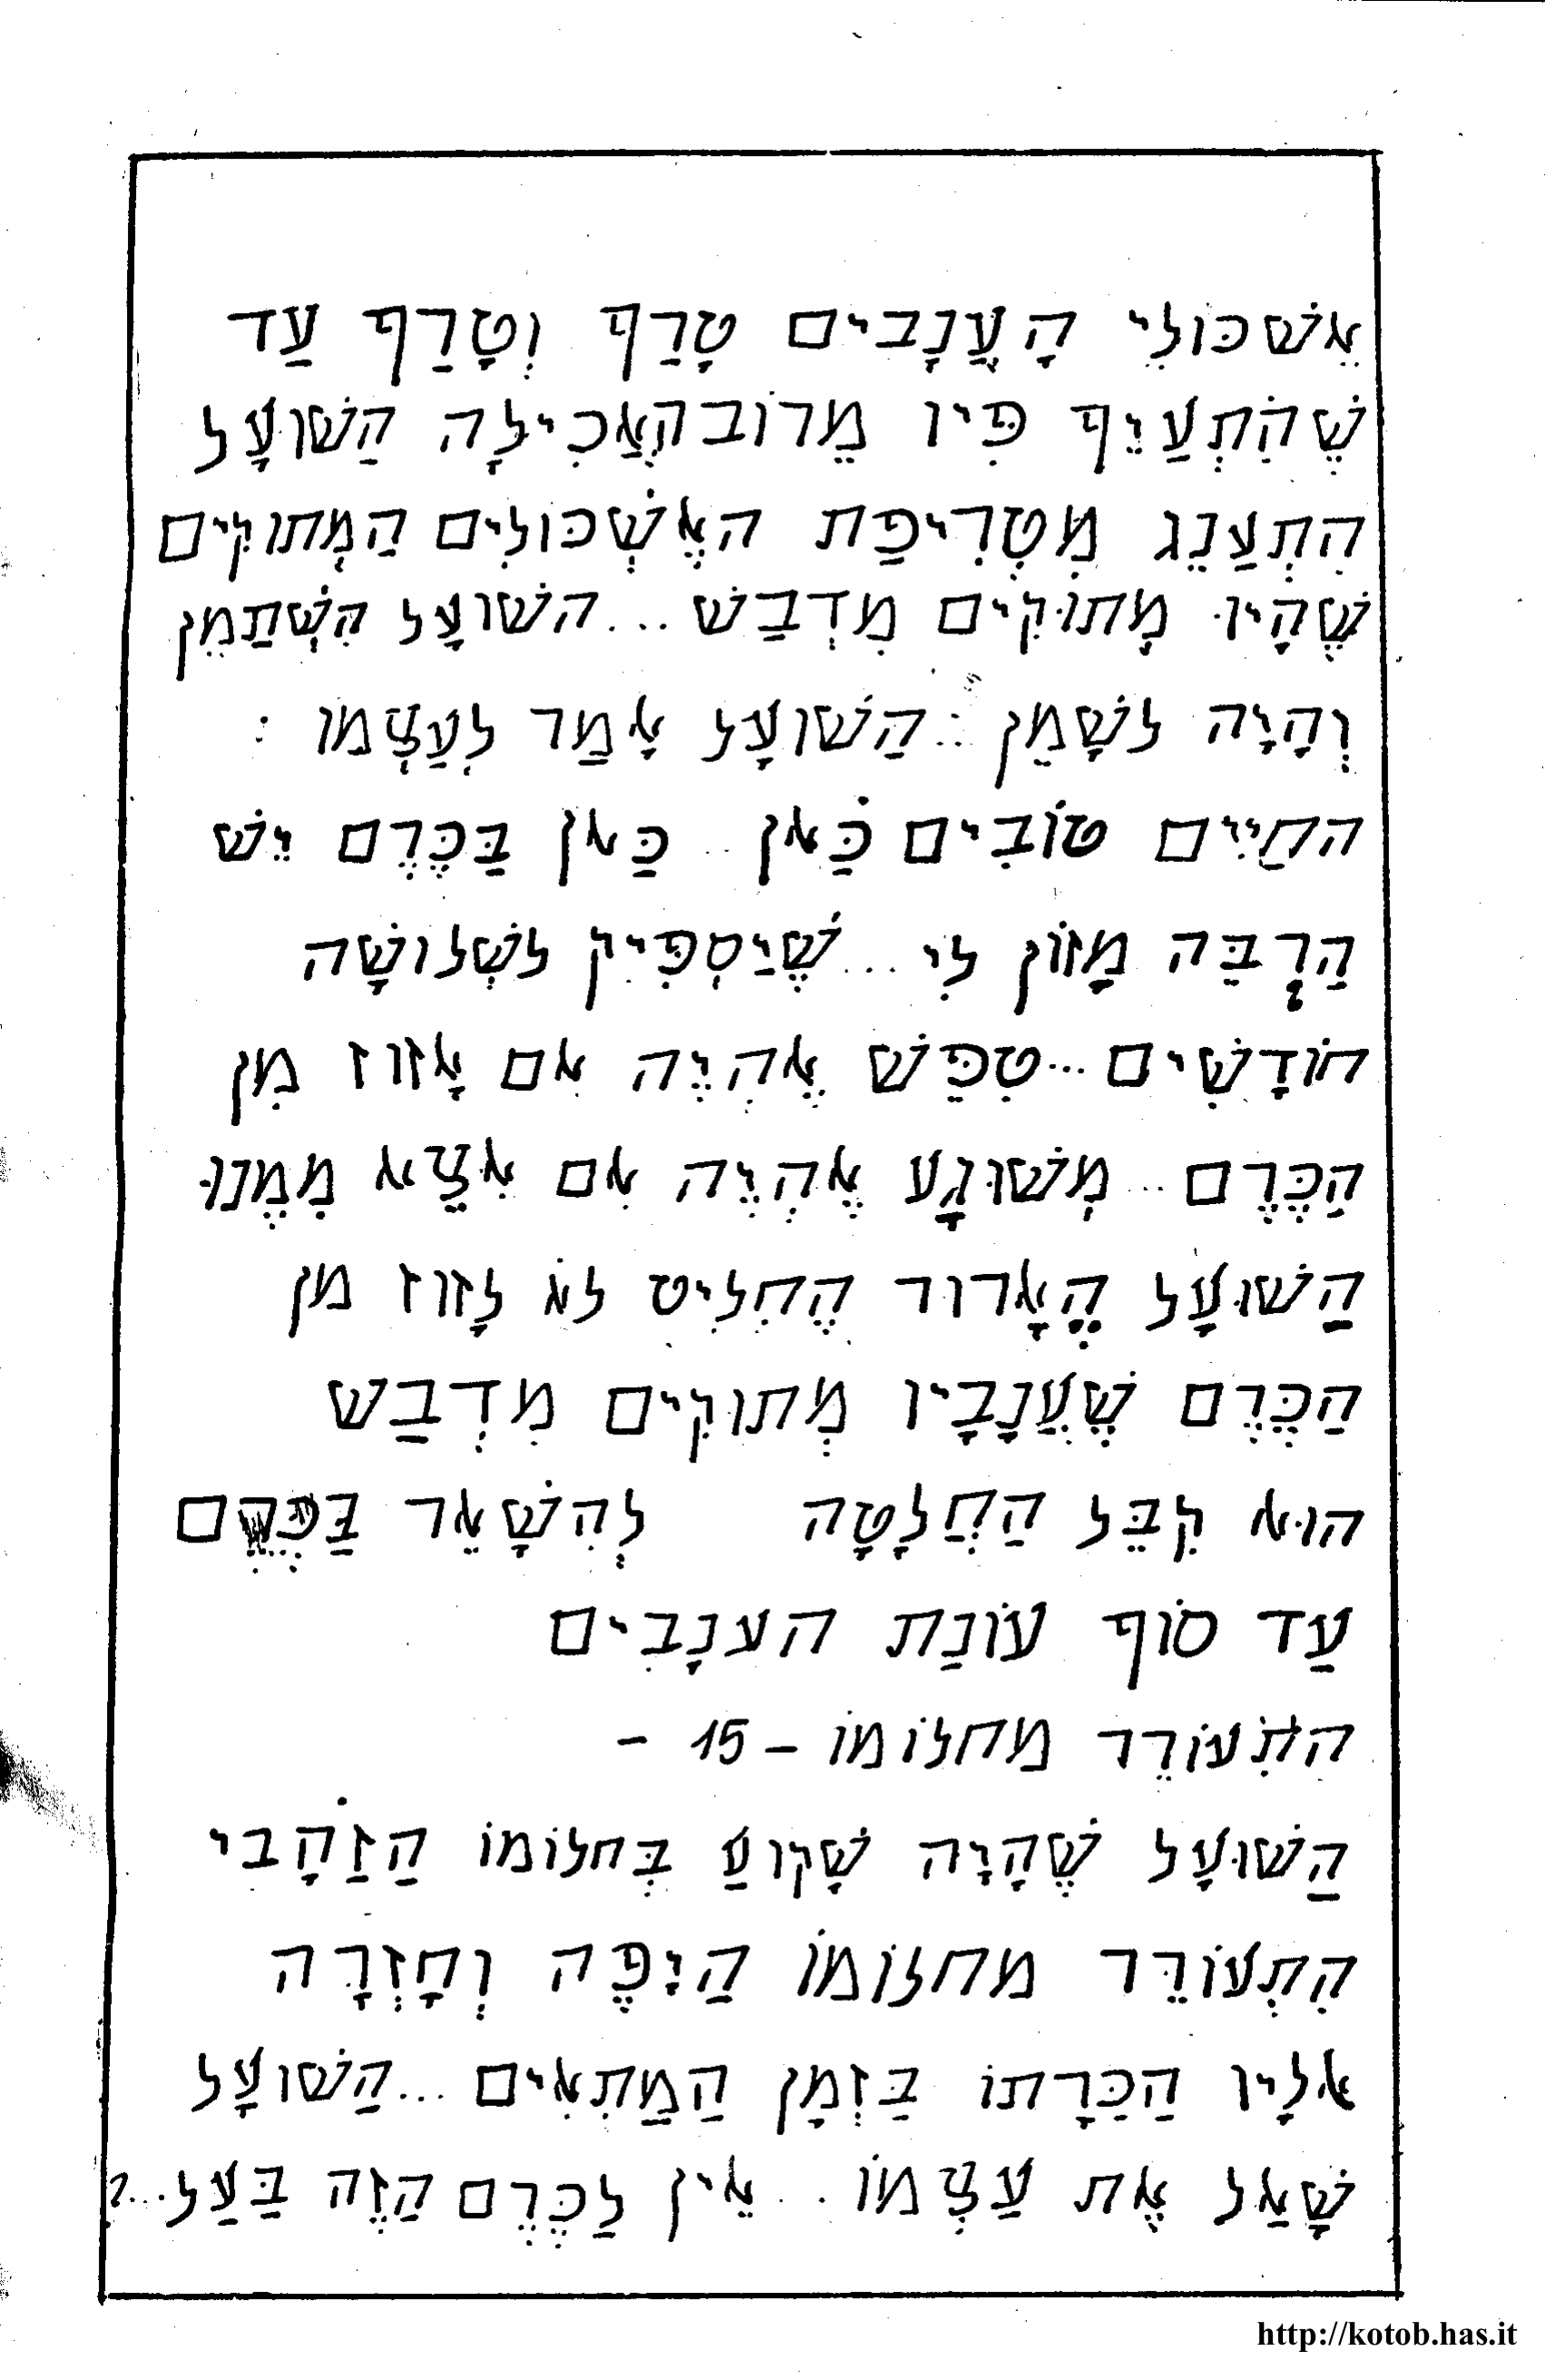 אֵשׁכּוֹלֵי הָעֲנָבִים טָרַף וְטָרַף עַד
שֶׁהִתְעַיֵף פִּיו מֵרוֹב הָאֲכִילָה הַשׁוּעָל
הִתְעַנֵג מִטְרִיפַת האֶשְׁכּוֹלִים הַמְתוּקִים
שֶׁהָיוּ מְתוּקִים מִדְבַשׁ ...השׁוּעָל הִשְׁתַמֵן
וְהָיָה לשָׁמֵן ... הַשׁוּעָל אָמַר לְעַצְמוֹ :
החַיִים טוֹבִים כַּאן .. כַּאן בַּכֶּרֶם יֵשׁ
הַרְבֵּה מָזוֹן לִי ...שֶׁיַסְפִּיק לשְׁלוֹשָׁה
חוֹדָשִׁים ...טִפֵּשׁ אֶהְיֶה אִם אָזוּז מִן
הַכֶּרֶם .. מְשׁוּגָע אֶהְיֶה אִם אִצֵא מִמֶנוּ
הַשׁוּעָל הָאָרוּר הֶחְלִיט לֹא לָזוּז מִן
הַכֶּרֶם שֶׁעֲנָבָיו מְתוּקִים מִדְבַשׁ
הוּא קִבֵּל הַחְלָטָה לְהִשָׁאֵר בַּכֶּרֶם
עַד סוֹף עוֹנַת הענָבִים
התְעוֹרֵר מחלוֹמוֹ – 15 –
הַשׁוּעָל שֶׁהָיָה שָׁקוּעַ בְּחלוֹמוֹ הַזַהָבִי
הִתְעוֹרֵר מחלוֹמוֹ הַיפֶּה וְחָזְרָה
אלָיו הַכַּרָתוֹ בַּזְמָן הַמַתְאִים ...הַשׁוּעָל
שָׁאַל אֶת עַצְמוֹ .. אֵין לַכֶּרֶם הַזֶה בַּעַל...?
http://kotob.has.it